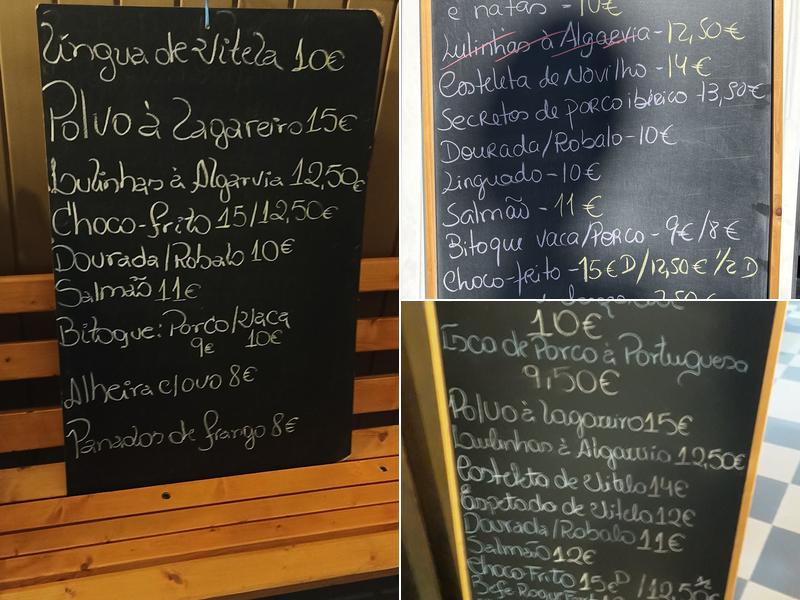 Língua de Vitela 10€
Polvo à Lagareiro 15€
Lulinhas à Algarvia 12,50€
Choco-frito 15/12,50€
Dourada/Robalo 10€
Salmão 11€
Bitoque: Porco/Vaca
9€ 10€
Alheira c/ovo 8€
Panados de frango 8€
e natas - 10€
Lulinhas à Algarvia - 12,50€
Costeleta de Novilho - 14€
Secretos de porco ibérico 13,50€
Dourada/Robalo - 10€
Linguado - 10€
Salmão - 11€
Bitoque vaca/Porco - 9€/8€
Choco-frito - 15€ D/12,50€ 1/2 D
10€
Isco de Porco à Portuguesa
9,50€
Polvo à Lagareiro 15€
Lulinhas à Algarvia 12,50€
Costeleta de Vitela 14€
Espetada de Vitela 12€
Dourada/Robalo 11€
Salmão 12€
Choco Frito 15€D /12,50